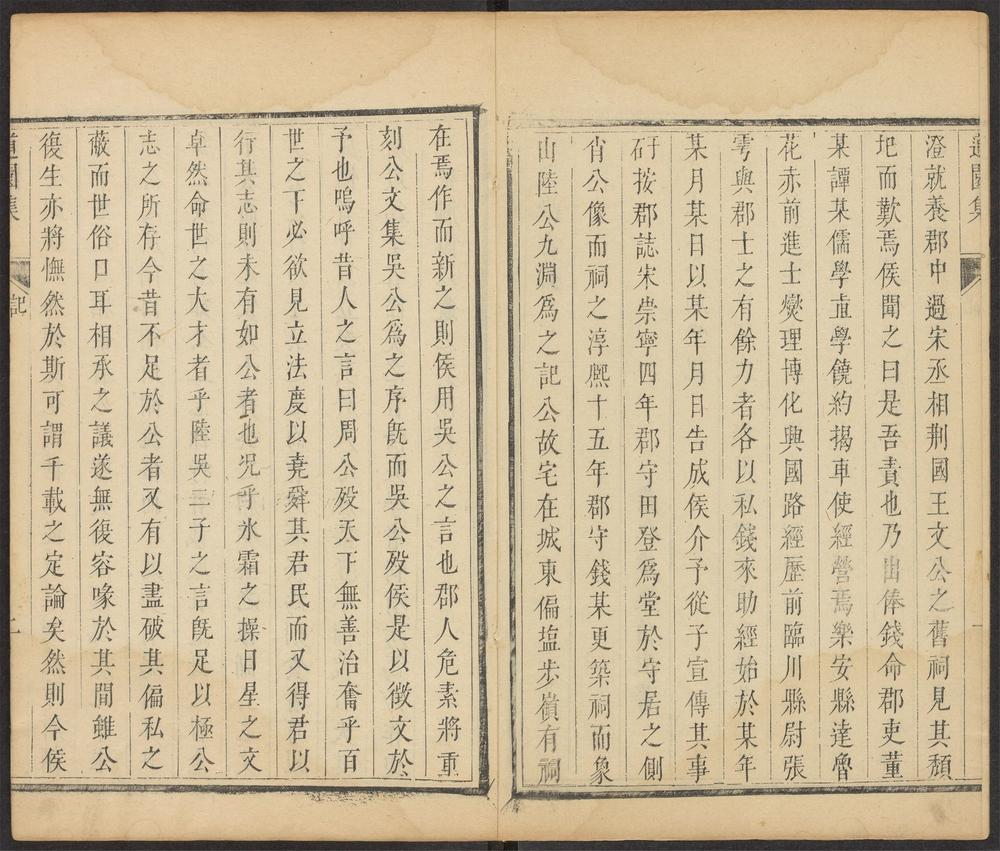 道園集
澄就養郡中過宋丞相荆國王文公之舊祠見其頹
圯而歎焉侯聞之曰是吾責也乃出俸錢命郡吏董
某譚某儒學直學饒約揭車使經營焉樂安縣達魯
花赤前進士燮理博化興國路經歷前臨川縣尉張
雩與郡士之有餘力者各以私錢來助經始於某年
某月某日以某年月日告成侯介予從子宣傳其事
矸按郡誌宋崇寧四年郡守田登爲堂於守居之側
肖公像而祠之淳熙十五年郡守錢某更築祠而象
山陸公九淵爲之記公故宅在城東偏塩步嶺有祠
在焉作而新之則侯用吳公之言也郡人危素將重
刻公文集吳公爲之序旣而吳公歿侯是以徵文於
予也嗚呼昔人之言曰周公歿天下無善治奮乎百
世之下必欲見立法度以堯舜其君民而又得君以
行其志則未有如公者也况乎氷霜之操日星之文
卓然命世之大才者乎陸吳二子之言旣足以極公
志之所存今昔不足於公者又有以盡破其偏私之
蔽而世俗口耳相承之議遂無復容喙於其間雖公
復生亦將憮然於斯可謂千載之定論矣然則今侯
道園集
記
二